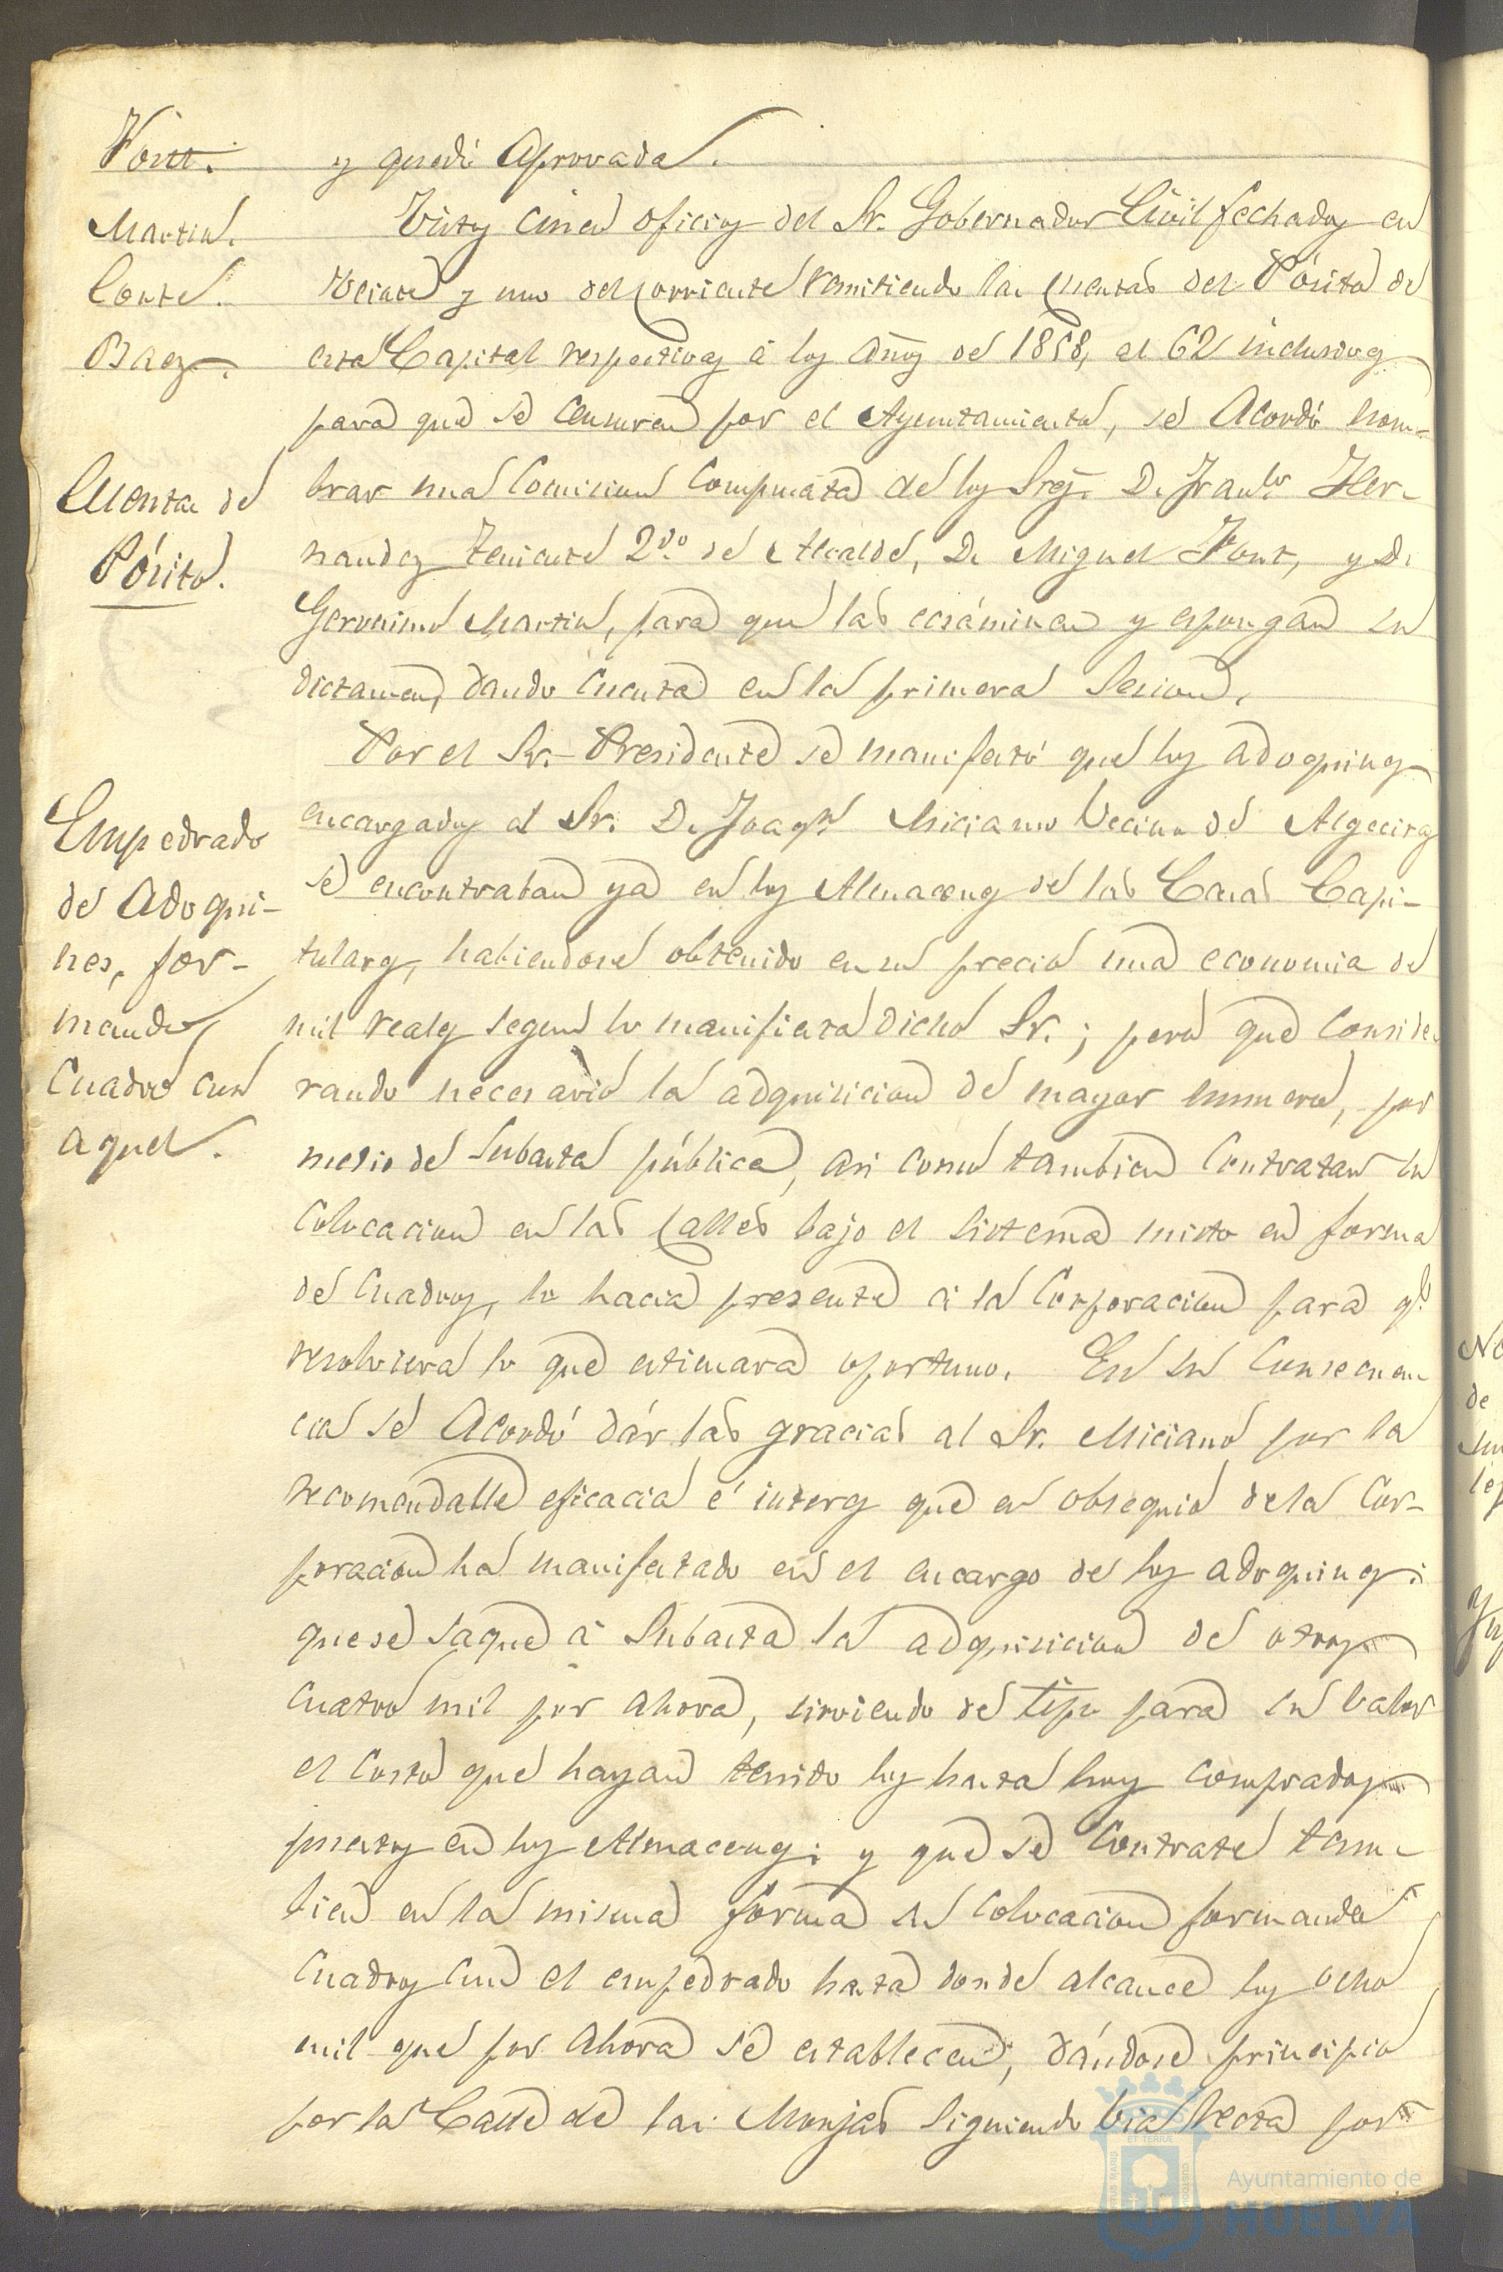 Font.
Martin.
Conte.
Baez.
Cuentas de
Pósito.
Empedrado
de Adoqui-
nes, for-
mando
Cuadro con
aquel.
y quedó Aprovada.
Vistos cinco oficios del Sr. Gobernador Civil fechados en
Veinte y uno del corriente remitiendo las cuentas del Pósito de
esta Capital respectivas á los años de 1858, al 62 inclusives
para que se censuren por el Ayuntamiento, se Acordó nom-
brar una Comision compuesta de los Sres. D. Franco. Her-
nandez Teniente 2do. de Alcalde, D. Miguel Font, y D.
Geronimo Martin, para que las ecsáminen y espongan su
dictamen, dando cuenta en la primera Sesion.
Por el Sr. Presidente se manifestó que los adoquines
encargados al Sr. D. Joaqn. Miciano Vecino de Algeciras
se encontraban ya en los Almacenes de las Casas Capi-
tulares, habiendose obtenido en su precio una economia de
mil reales segun lo manifiesta dicho Sr.; pero que conside-
rando necesario la adquisicion de mayor numero, por
medio de Subasta pública, asi como tambien contratar su
colocacion en las calles bajo el sistema misto en forma
de cuadros, lo hacia presente á la Corporacion para qe.
resolviera lo que estimara oportuno. En su consecuen-
cia se Acordó dár las gracias al Sr. Miciano por la
recomendable eficacia é interes que en obsequio de la Cor-
poracion ha manifestado en el encargo de los adoquines:
que se saque á Subasta la adquisicion de otros
cuatro mil por ahora, sirviendo de tipo para su valor
el costo que hayan tenido los hasta hoy comprados
puestos en los Almacenes; y que se contrate tam-
bien en la misma forma su colocacion formando
cuadros con el empedrado hasta donde alcance los ocho
mil que por ahora se establecen, dándose principio
por la Calle de las Monjas siguiendo via recta por
Ayuntamiento de
HUELVA